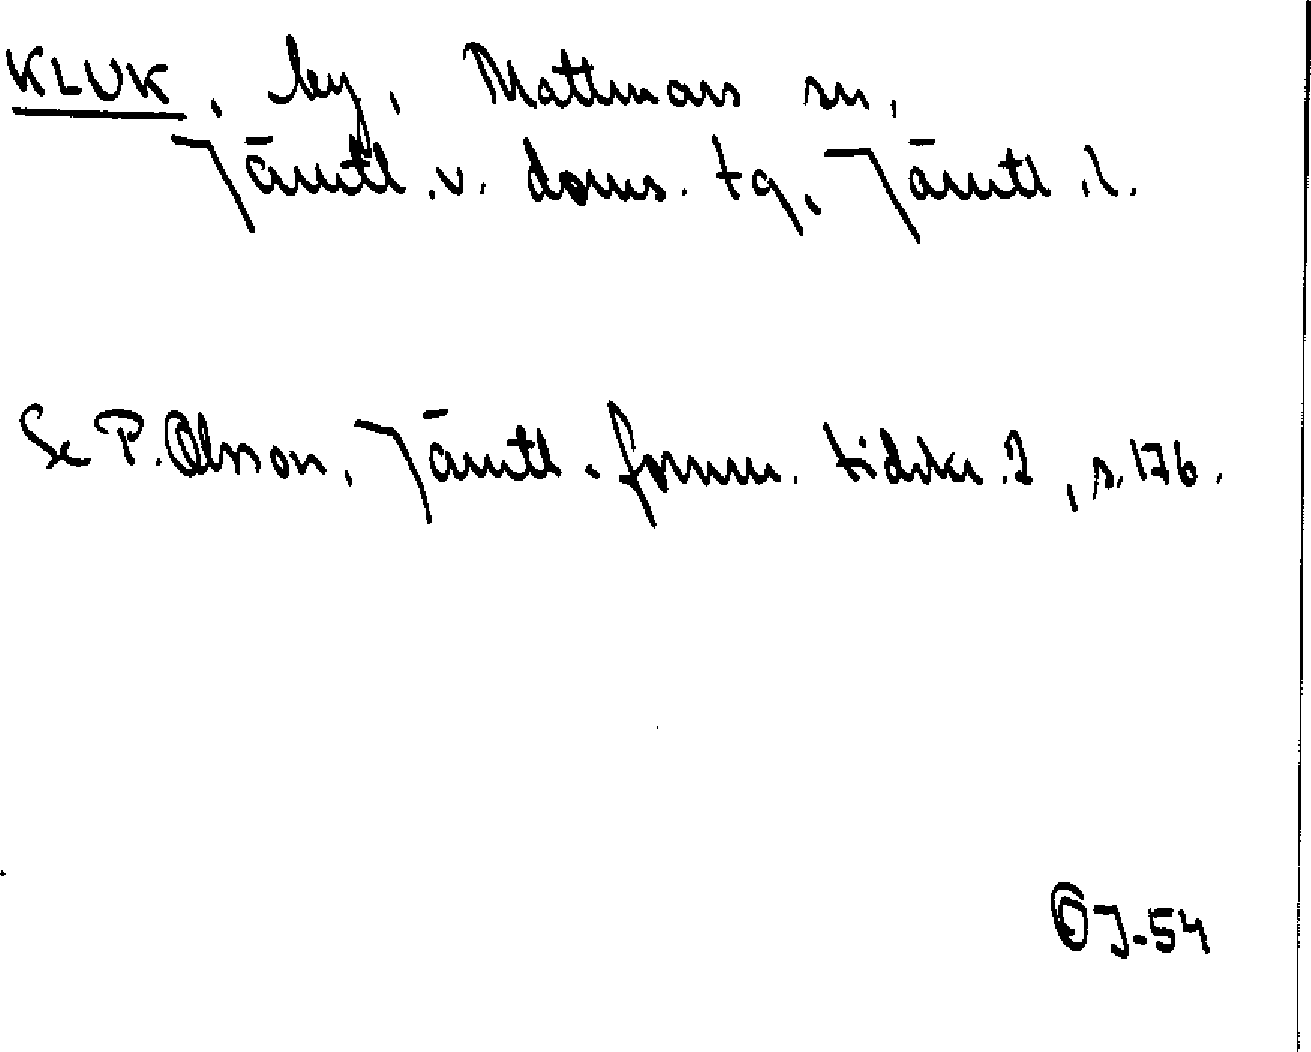 KLUK, by, Mattmars sn,
Jämtl. v. doms. tg, Jämtl. l.
Se P. Olsson, Jämtl. fornm. tidskr. 2, s. 176.
OJ-54